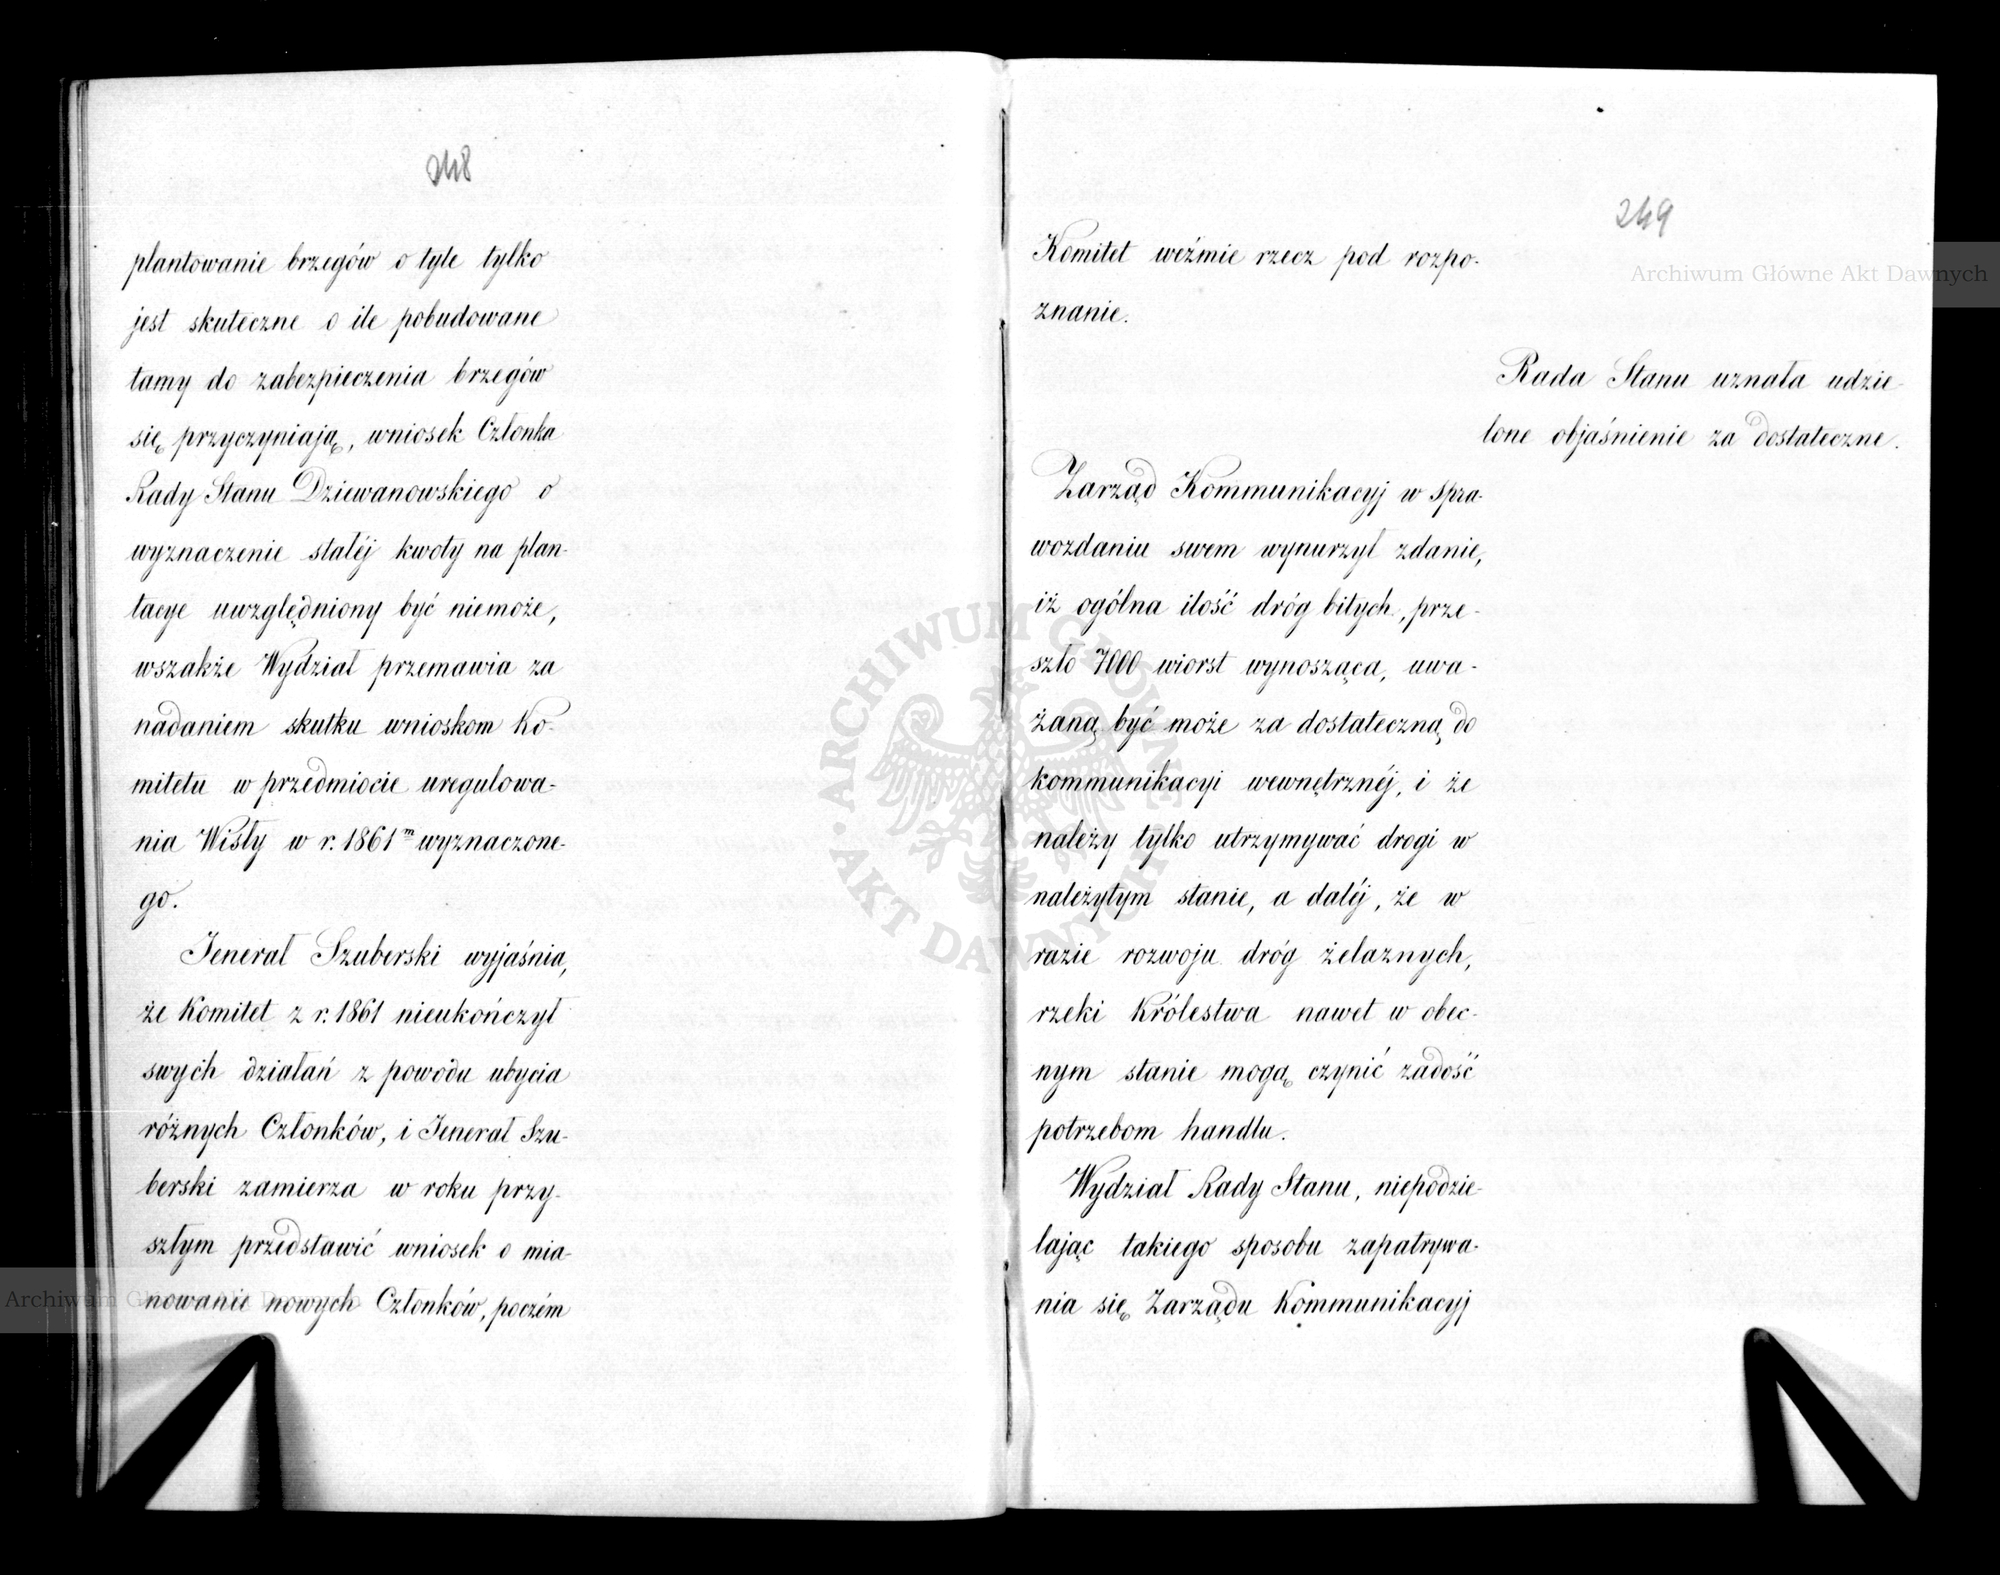 248
plantowanie brzegów o tyle tylko
jest skuteczne o ile pobudowane
tamy do zabezpieczenia brzegów
się przyczyniają, wniosek Członka
Rady Stanu Dziewanowskiego o
wyznaczenie stałéj kwoty na plan-
tacye uwzględniony być niemoże,
wszakże Wydział przemawia za
nadaniem skutku wnioskom Ko-
mitetu w przedmiocie uregulowa-
nia Wisły w r. 1861m wyznaczone-
go.
Jenerał Szuberski wyjaśnia,
że Komitet z r. 1861 nieukończył
swych działań z powodu ubycia
różnych Członków, i Jenerał Szu-
berski zamierza w roku przy-
szłym przedstawić wniosek o mia-
nowanie nowych Członków, poczém
249
Komitet weźmie rzecz pod rozpo-
znanie.
Rada Stanu uznała udzie-
lone objaśnienie za dostateczne.
Zarząd Kommunikacyj w spra-
wozdaniu swem wynurzył zdanie,
iż ogólna ilość dróg bitych, prze-
szło 7000 wiorst wynosząca, uwa-
żaną być może za dostateczną do
kommunikacyi wewnętrznéj, i że
należy tylko utrzymywać drogi w
należytym stanie, a daléj, że w
razie rozwoju dróg żelaznych,
rzeki Królestwa nawet w obec-
nym stanie mogą czynić zadość
potrzebom handlu.
Wydział Rady Stanu, niepodzie-
lając takiego sposobu zapatrywa-
nia się Zarządu Kommunikacyj
Archiwum Główne Akt Dawnych
Archiwum Główne Akt Dawnych
ARCHIWUM GŁÓWNE AKT DAWNYCH